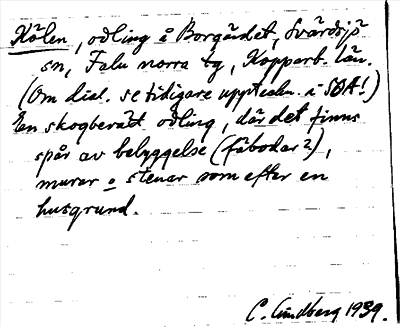 Kölen, odling å Borgärdet, Svärdsjö
sn, Falu norra tg, Kopparb. län.
(Om dial. se tidigare uppteckn. i SOA!)
En skogberätt odling, där det finns
spår av bebyggelse (fäbodar?),
murar o stenar som efter en
husgrund.
C. Lindberg 1939.